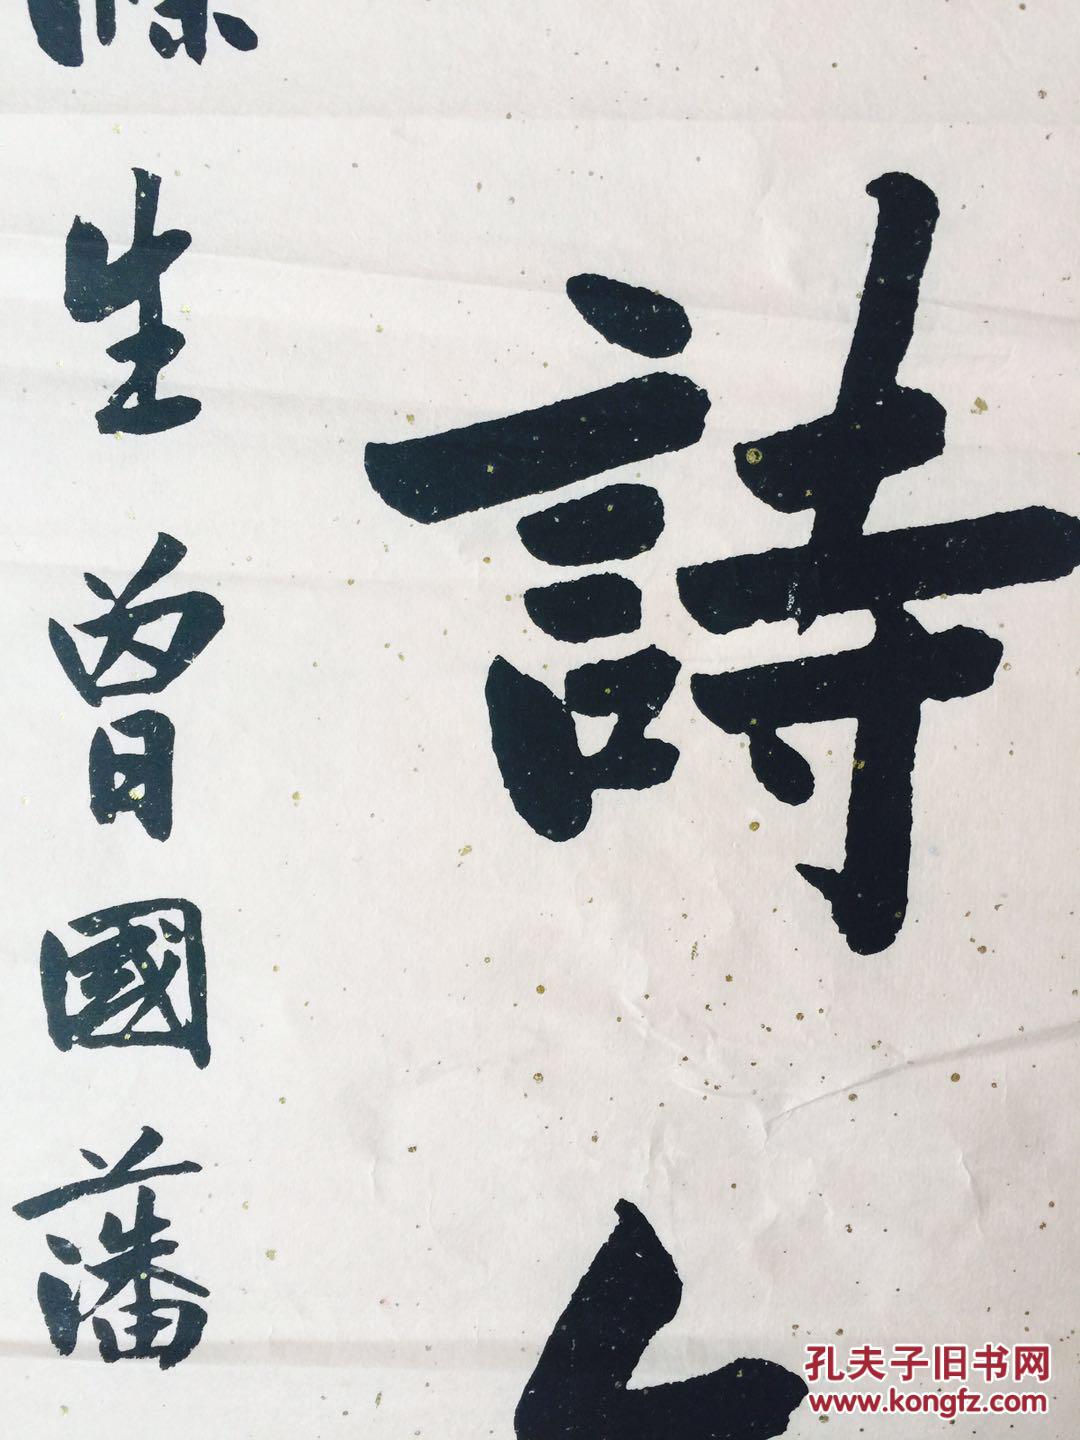 詩
生曾國藩
孔夫子旧书网
www.kongfz.com